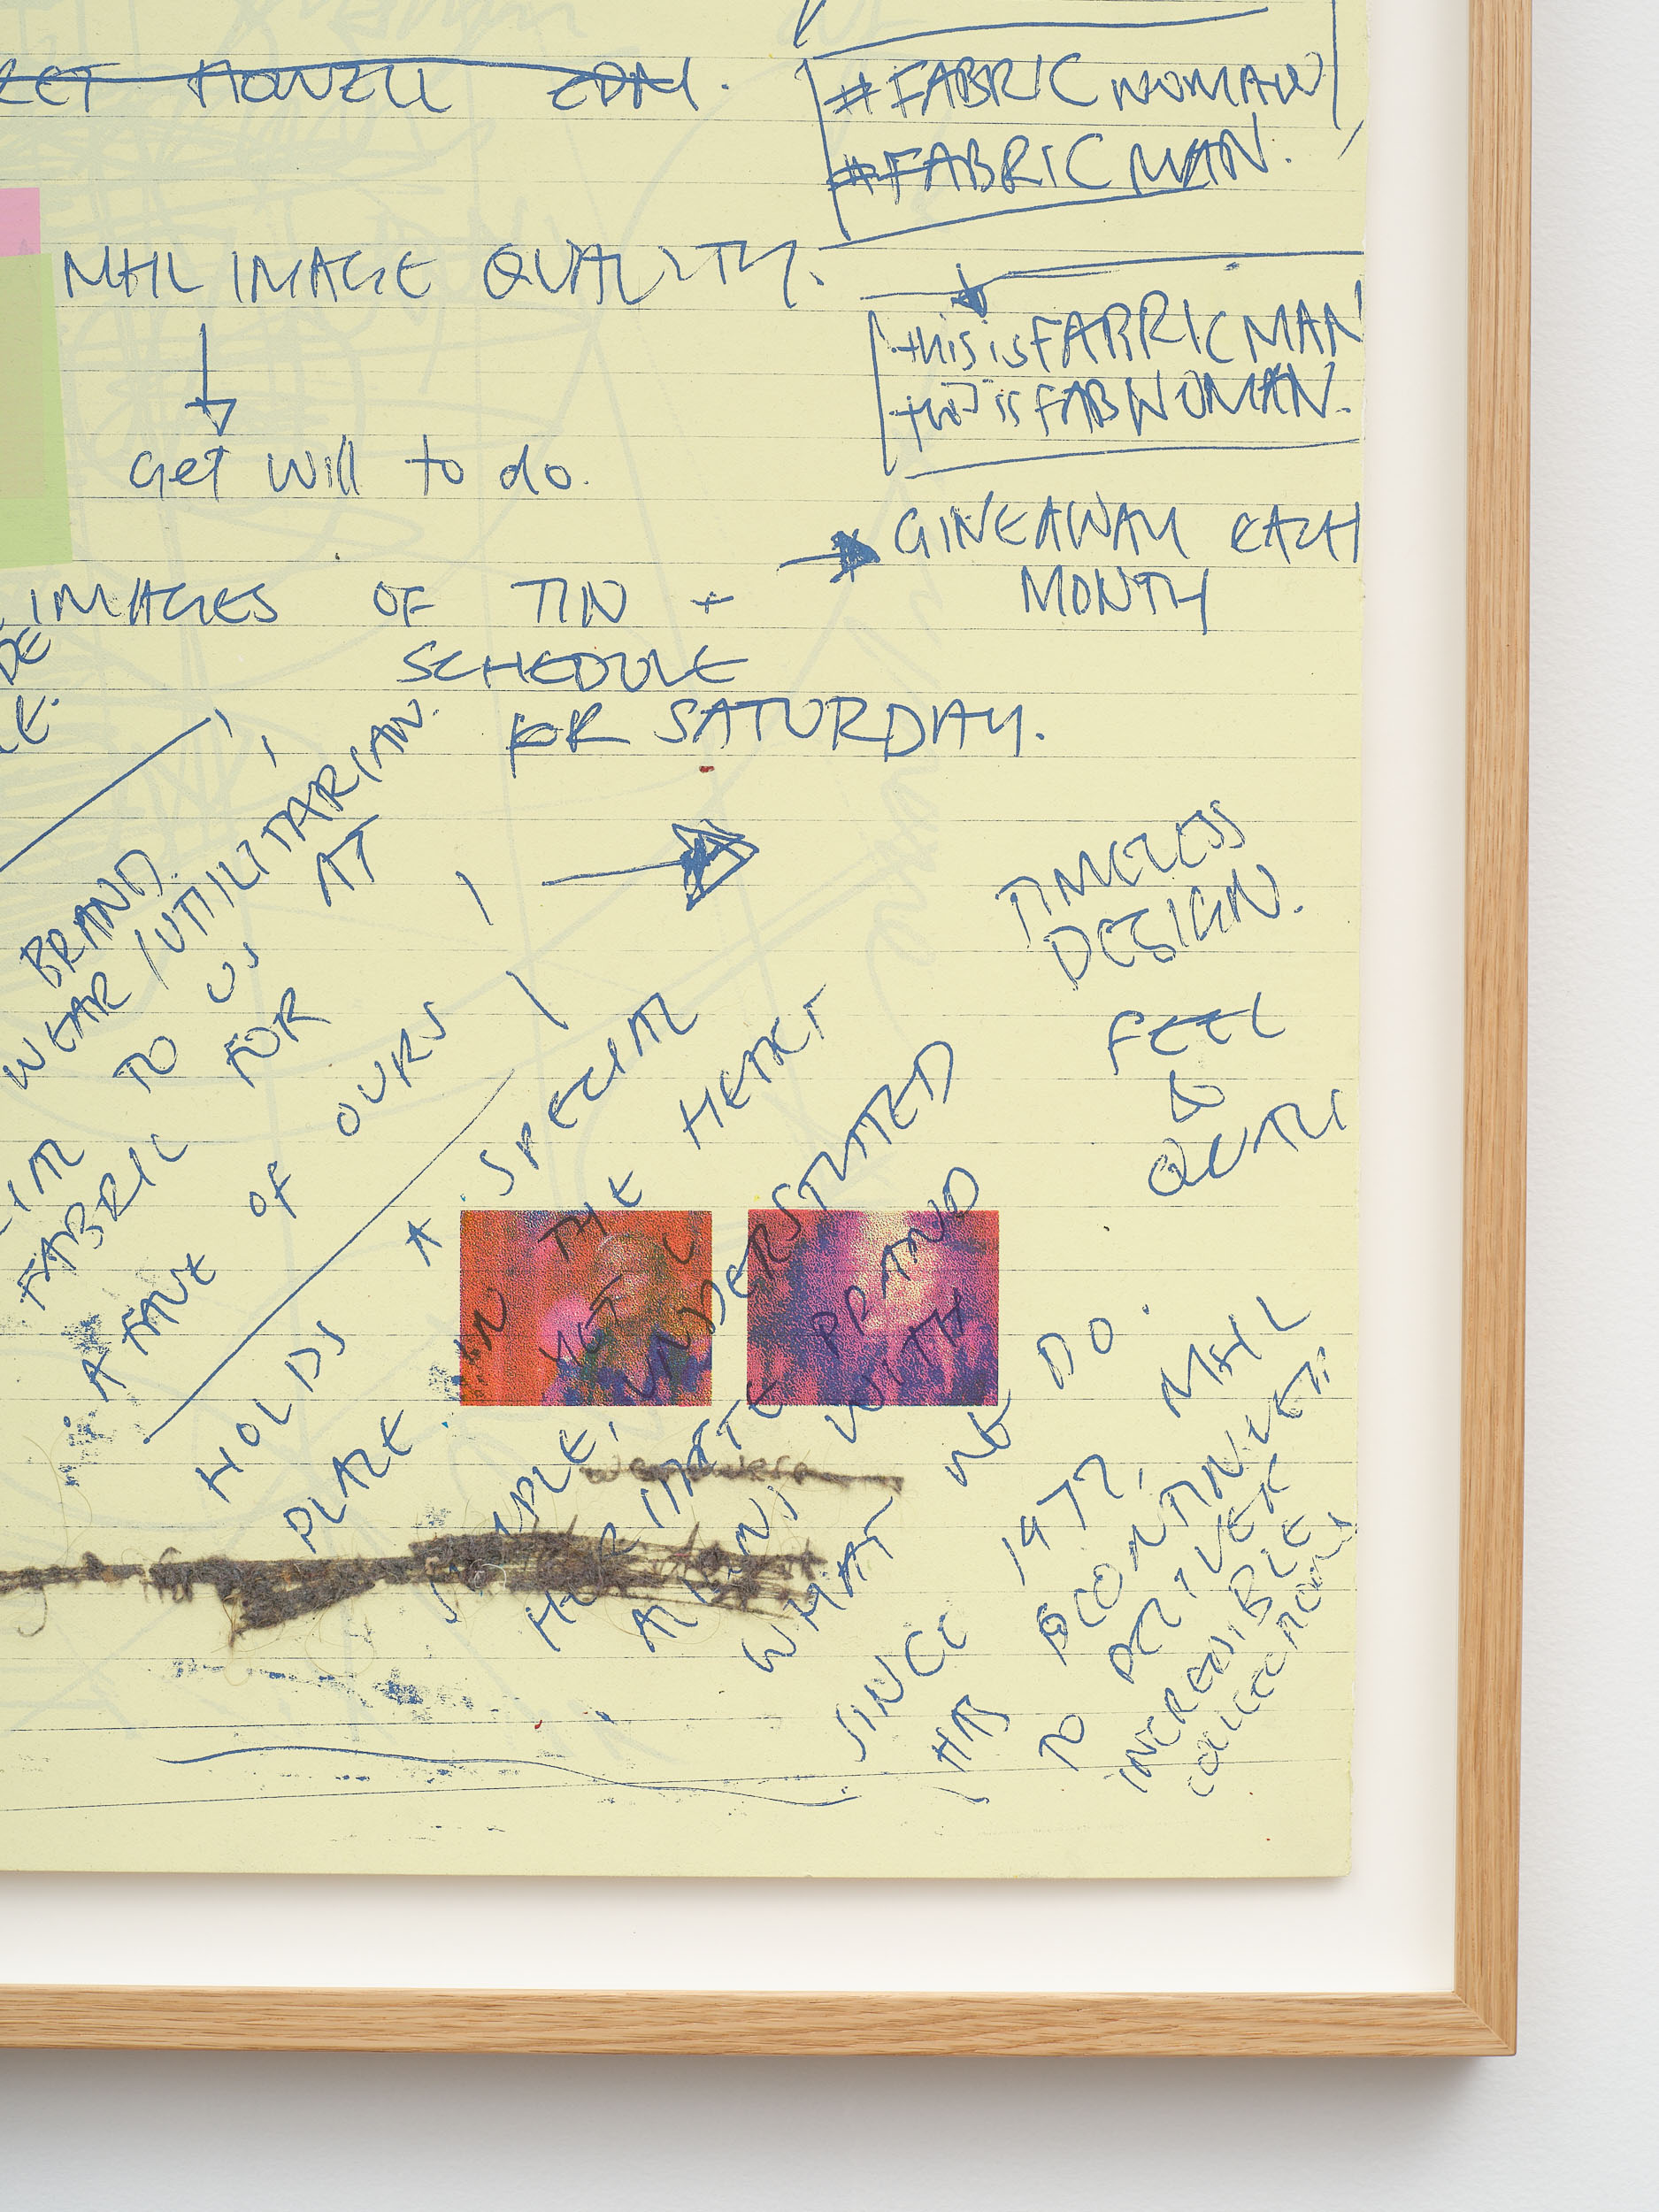 HOWELL EDM.
#FABRICWOMAN
#FABRICMAN.
MHL IMAGE QUALITY.
thisisFABRICMAN
thisisFABWOMAN.
Get Will to do.
GIVEAWAY EACH
MONTH
IMAGES OF TIN +
SCHEDULE
FOR SATURDAY.
BRAND.
WEAR/UTILITARIAN.
TO US AT
FABRIC FOR
A TAKE OF OURS
TIMELESS
DESIGN.
FEEL
&
HOLDS A SPECIAL
PLACE IN THE HEART
SIMPLE, YET UNDERSTATED
HERITAGE BRAND
ALIGNS WITH
WHAT WE DO.
SINCE 1977, MHL
HAS CONTINUED
TO DELIVER
INCREDIBLE
COLLECTIONS